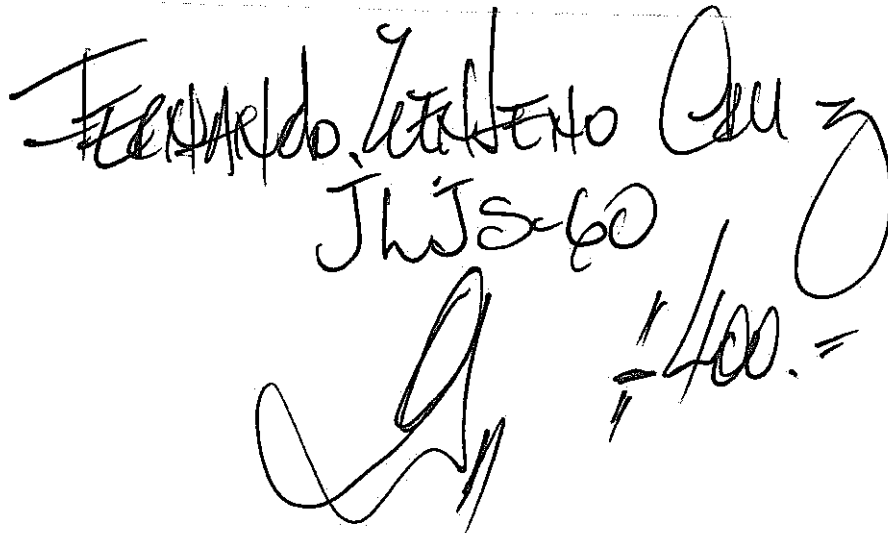 FERNANDO ZENTENO Cruz
JLJS-60
400.=